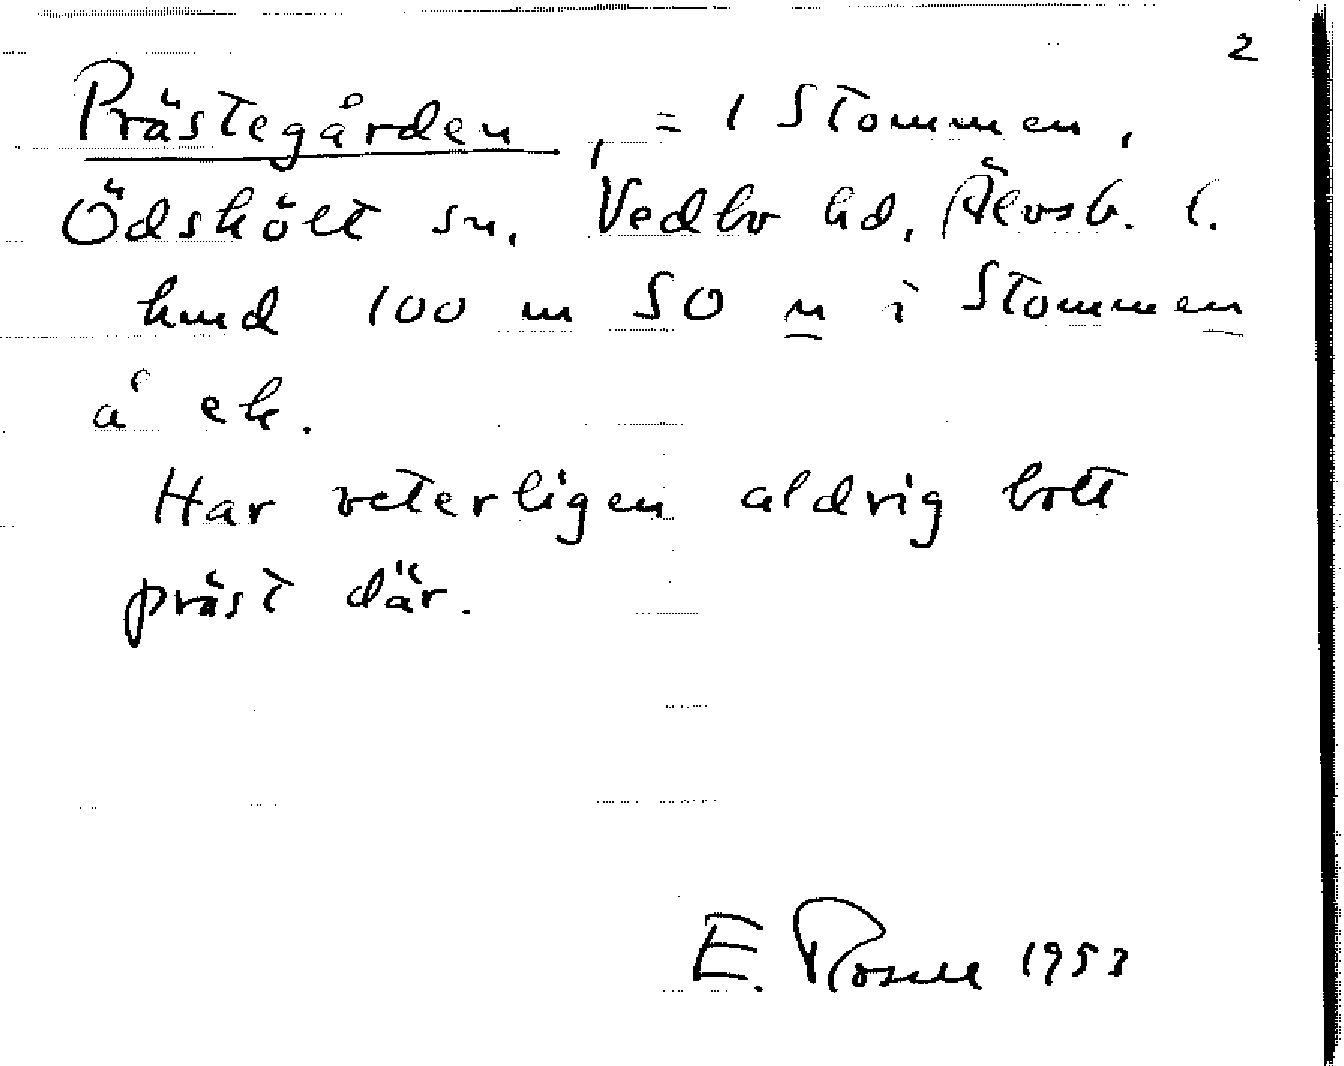 2
Prästegården, = 1 Stommen,
Ödskölt sn, Vedbo hd, Älvsb. l.
100 m SO n i Stommen
å ek.
Har veterligen aldrig bott
präst där.
E. 1953